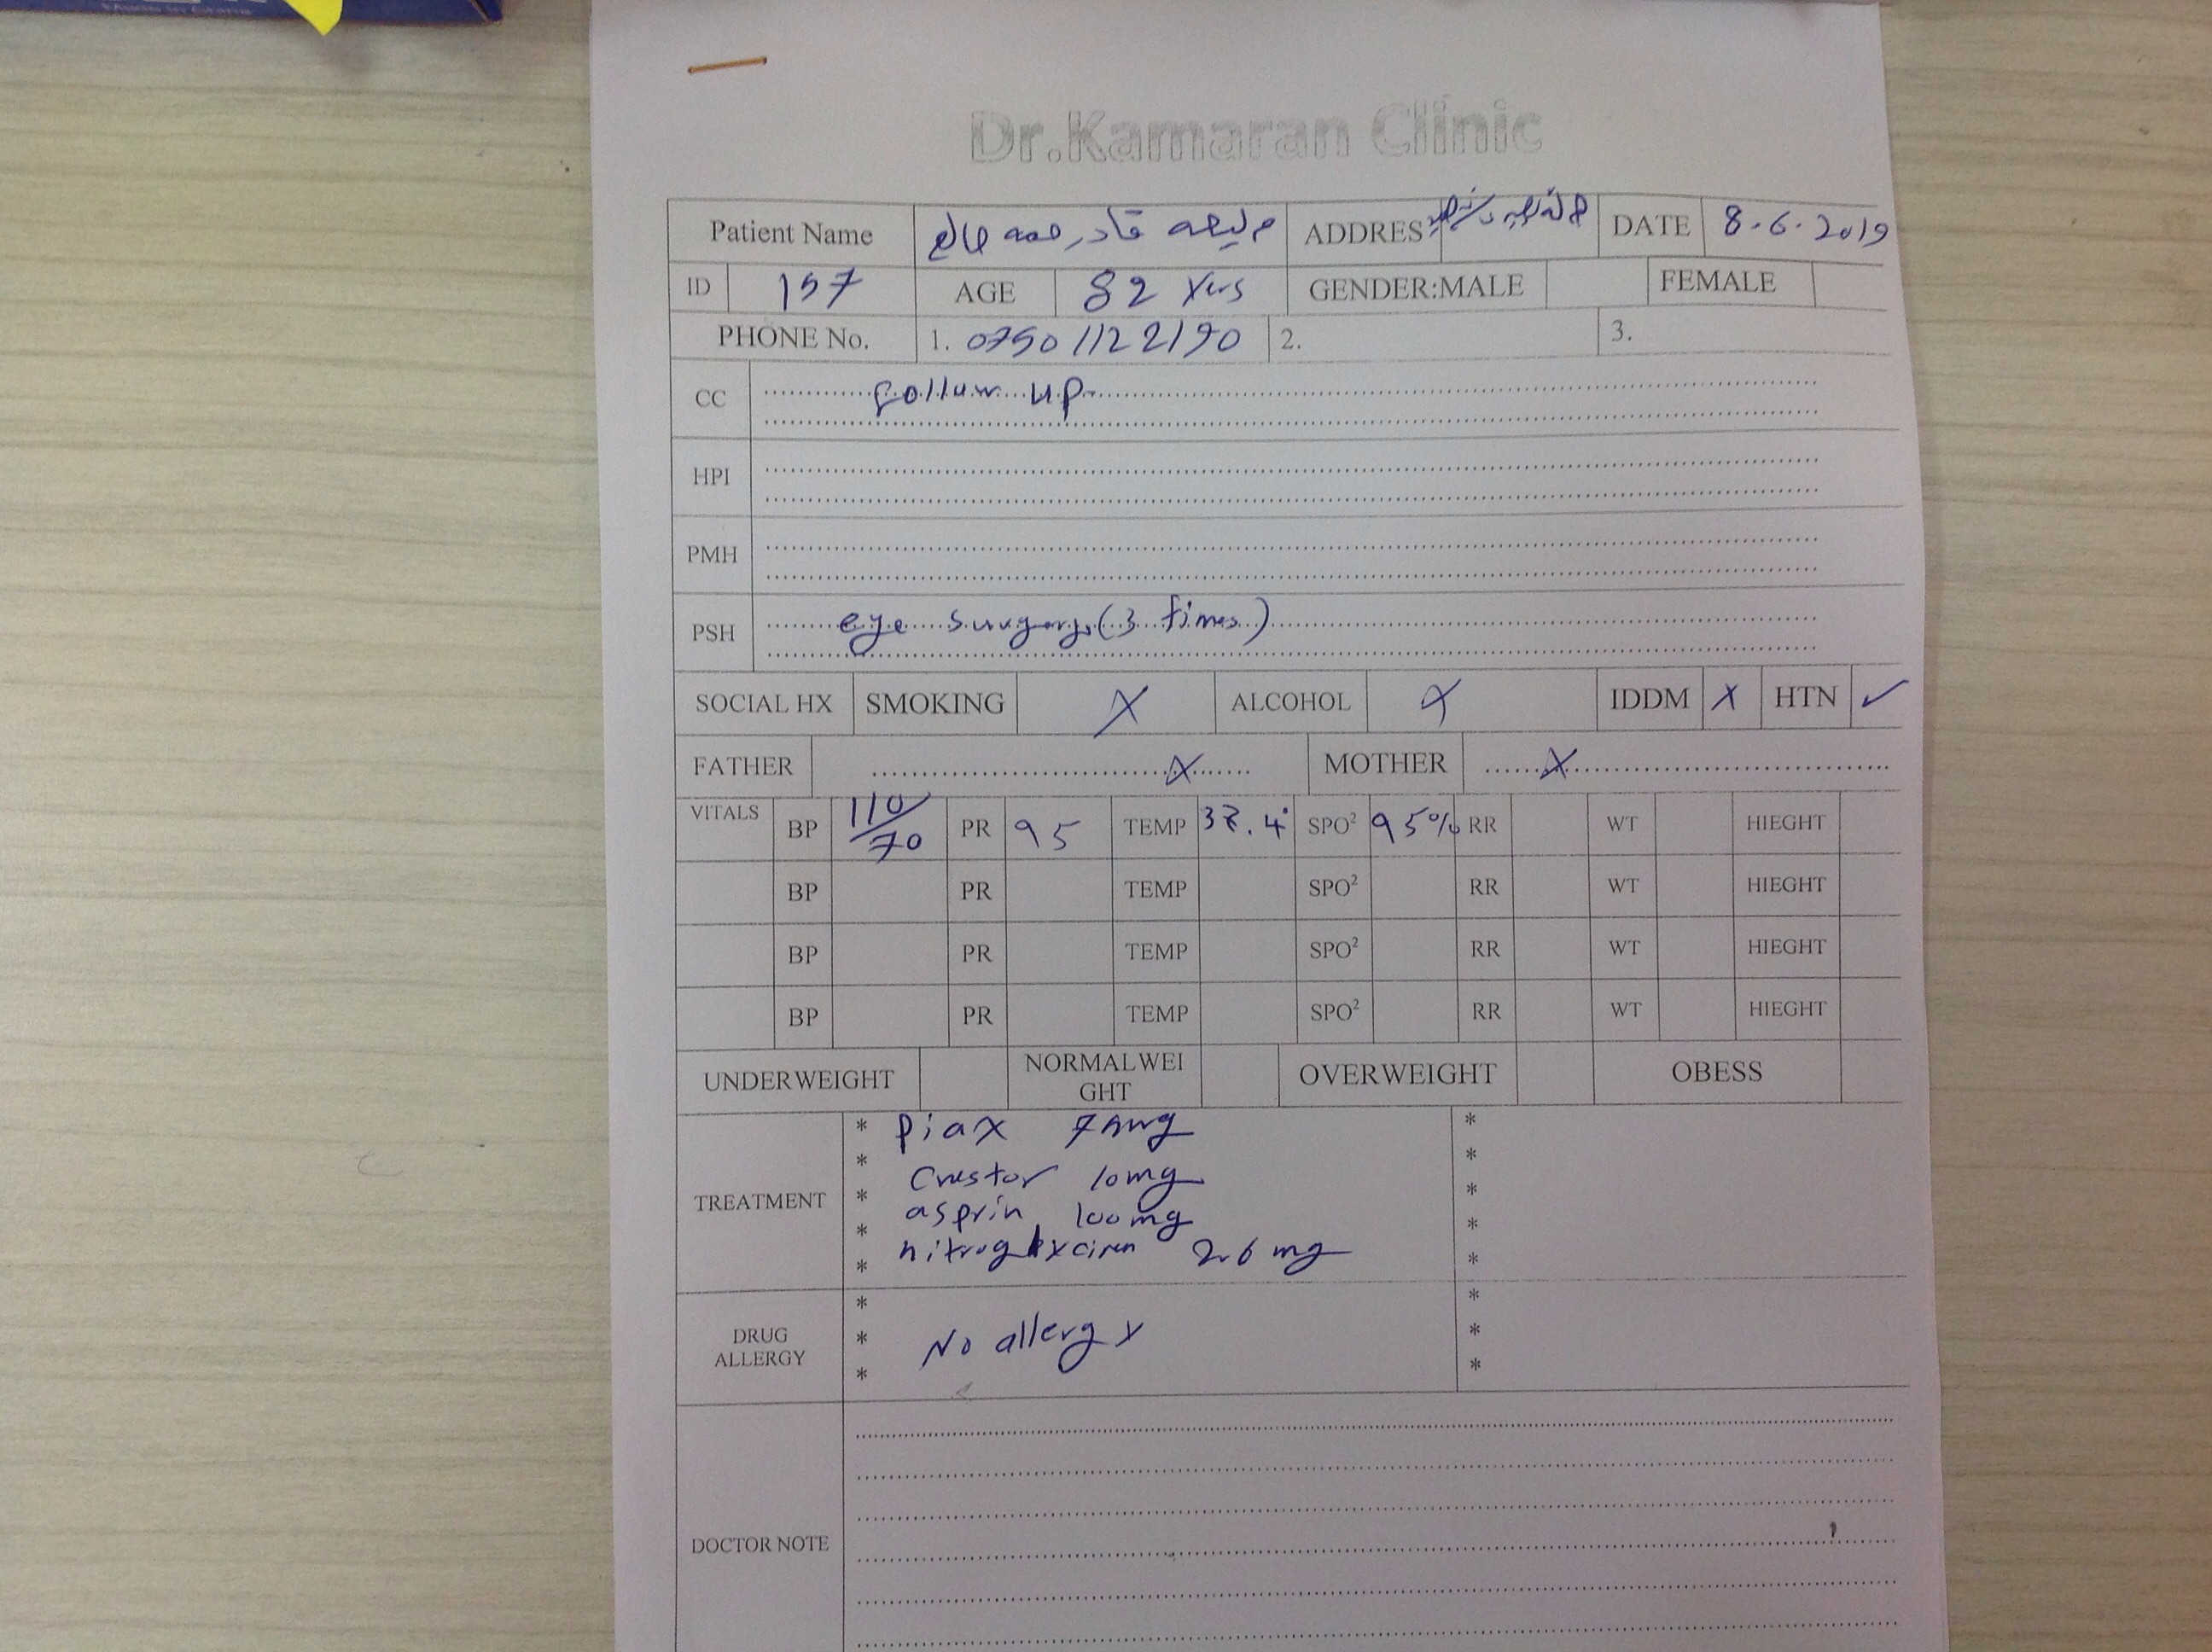 Dr.Kamaran Clinic
Patient Name مليحە قادر حمه صالح ADDRES DATE 8.6.2019
ID 157 AGE 82 Yrs GENDER:MALE FEMALE
PHONE No. 1. 07501122190 2. 3.
CC follow up
HPI
PMH
PSH eye surgery (3 times)
SOCIAL HX SMOKING X ALCOHOL X IDDM X HTN ✓
FATHER X MOTHER X
VITALS BP 110/70 PR 95 TEMP 37.4° SPO² 95% RR WT HIEGHT
BP PR TEMP SPO² RR WT HIEGHT
BP PR TEMP SPO² RR WT HIEGHT
BP PR TEMP SPO² RR WT HIEGHT
UNDERWEIGHT NORMALWEI
GHT OVERWEIGHT OBESS
TREATMENT
* piax 75mg *
* Crestor 10mg *
* asprin 100mg *
* 2.6 mg *
* *
DRUG
ALLERGY
* *
* No allergy *
* *
DOCTOR NOTE